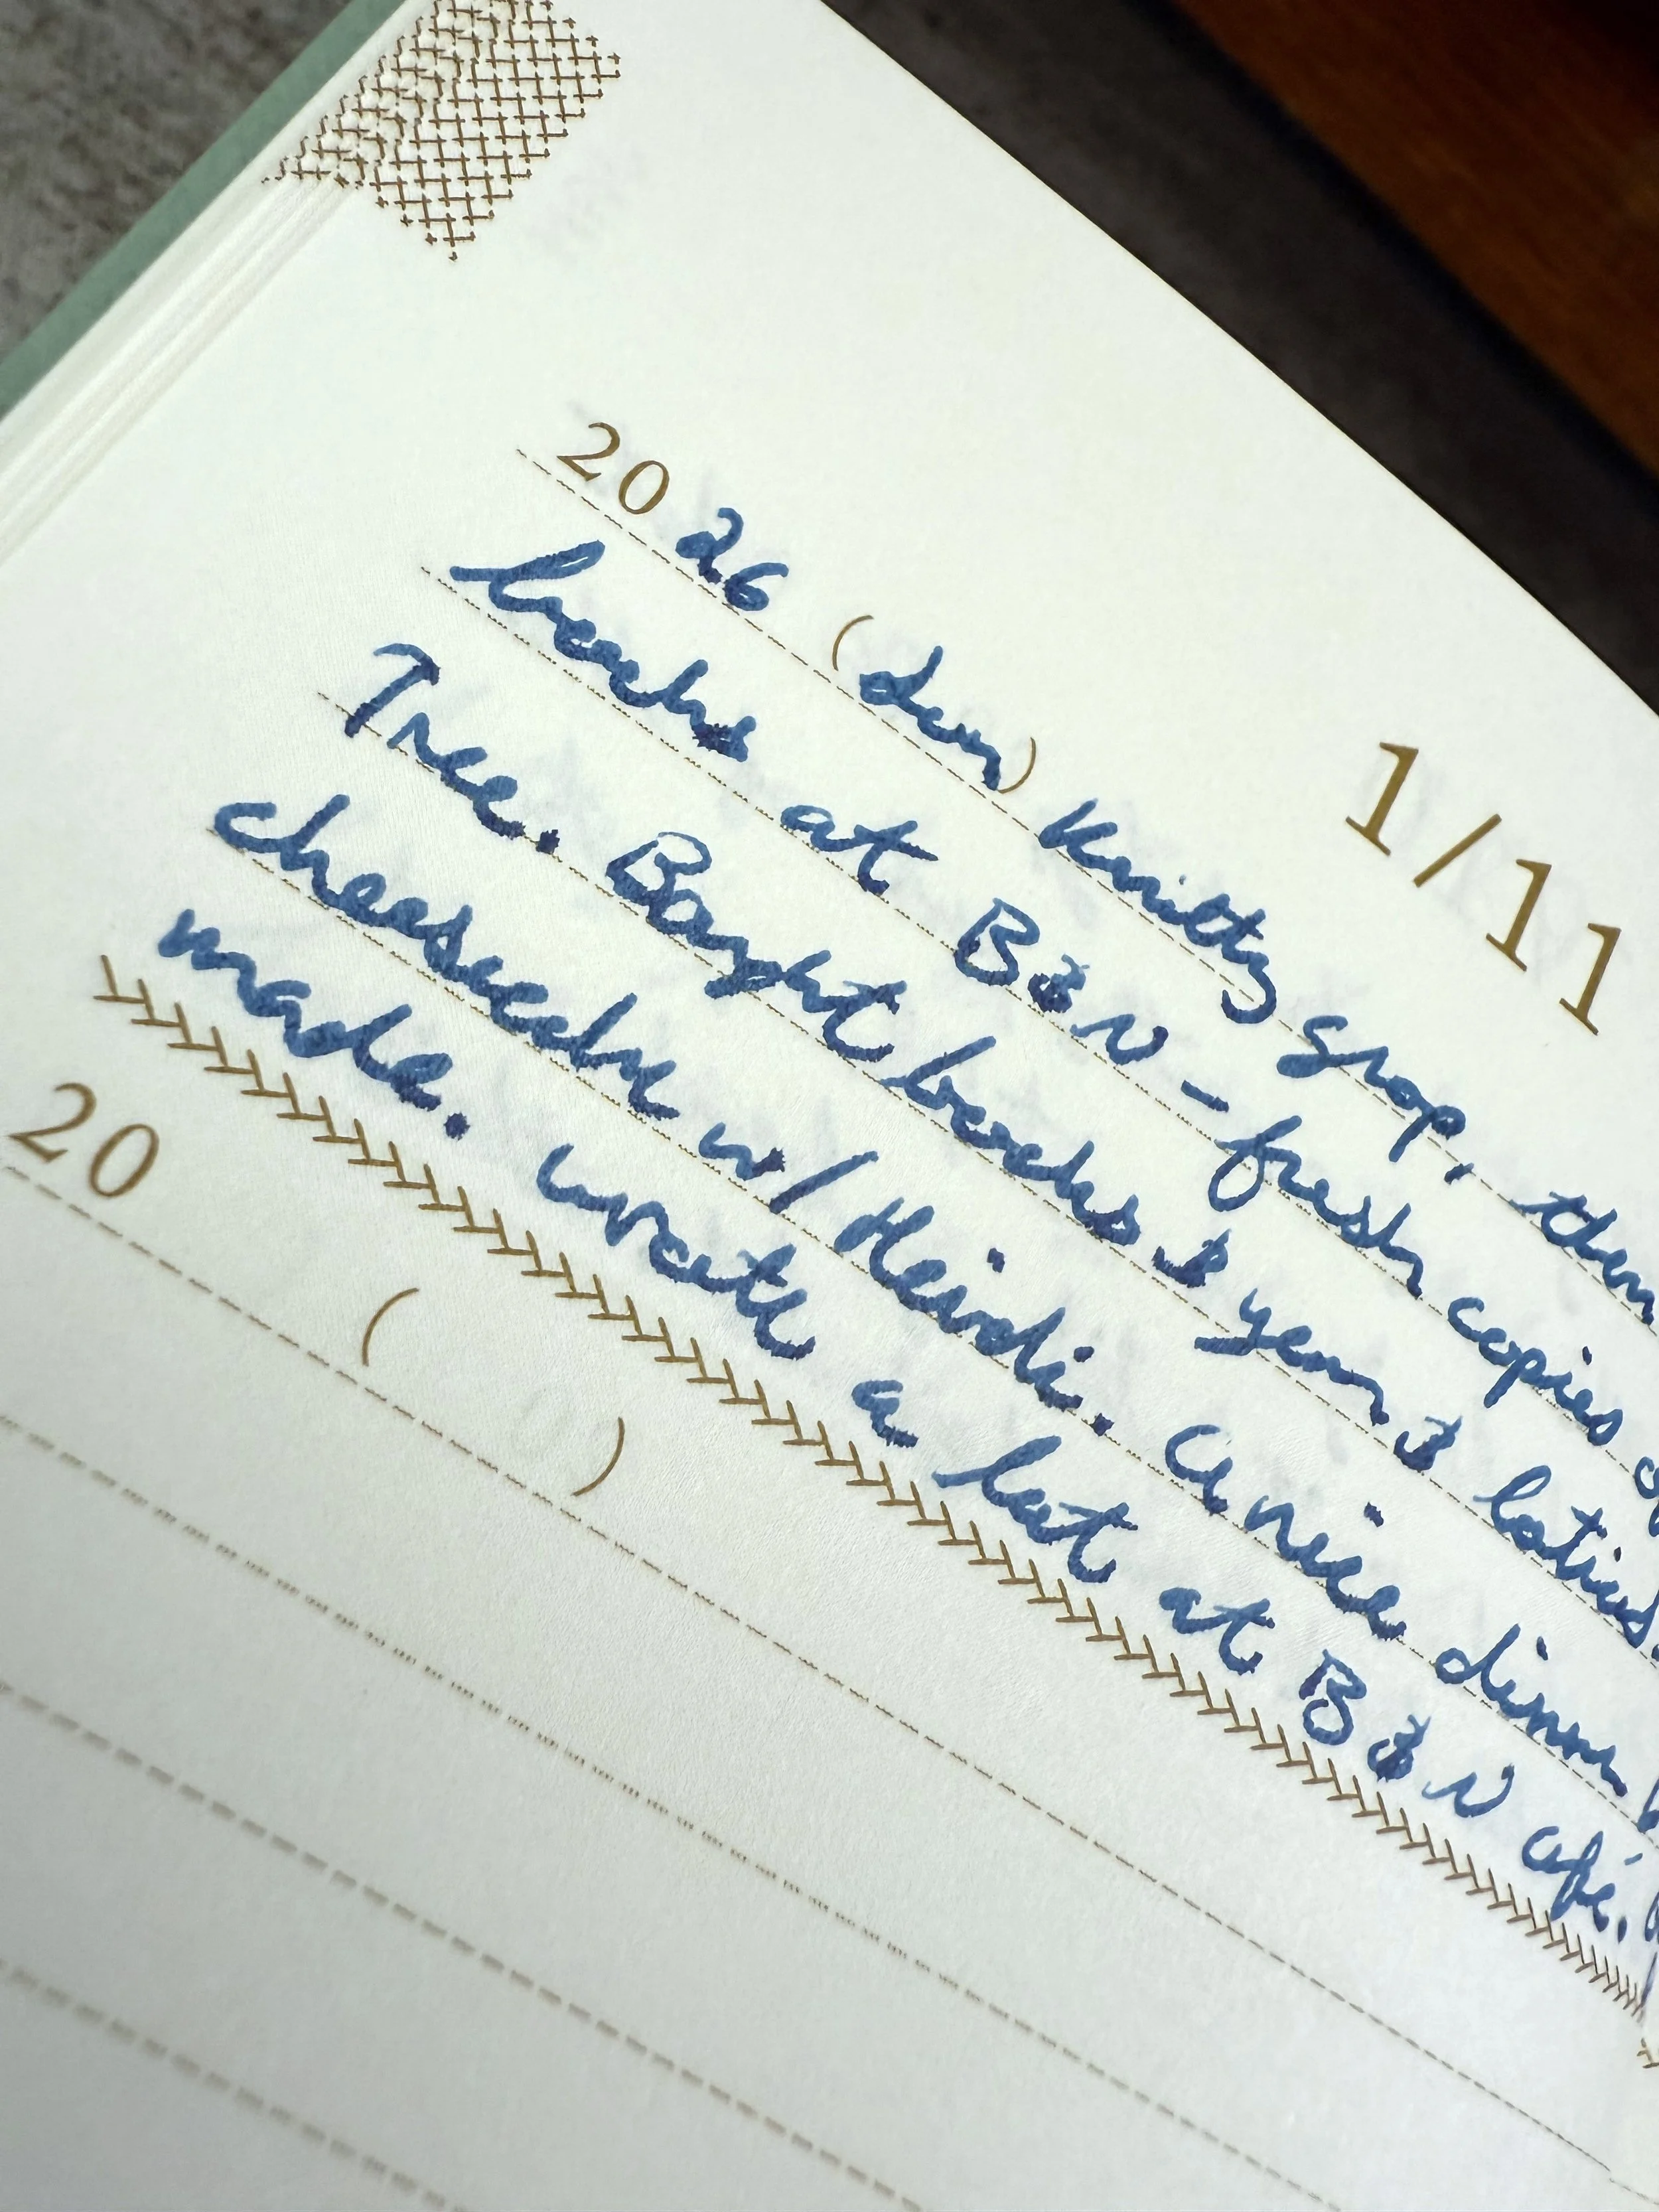 1/11
2026 (Sun) Knitty group, then
books at B&N - fresh copies of
Tree. Bought books & yarn & lotions.
cheesecake w/ Heidi. A nice dinner
made. Wrote a lot at B&N café.
20 ( )